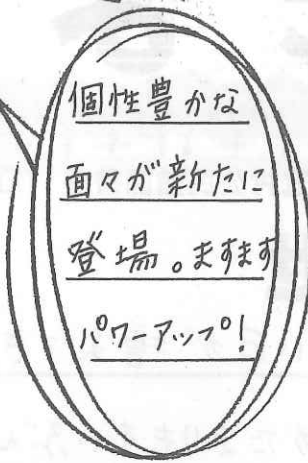 個性豊かな
面々が新たに
登場。ますます
パワーアップ!